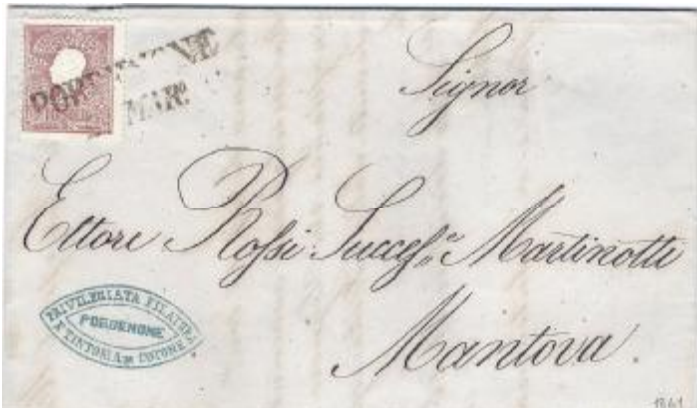 PORDENONE
MAR.º
Signor
Ettore Rossi Success.e Martinotti
Mantova.
PRIVILEGIATA FILATURA
PORDENONE
E TINTORIA DI COTONE
1861